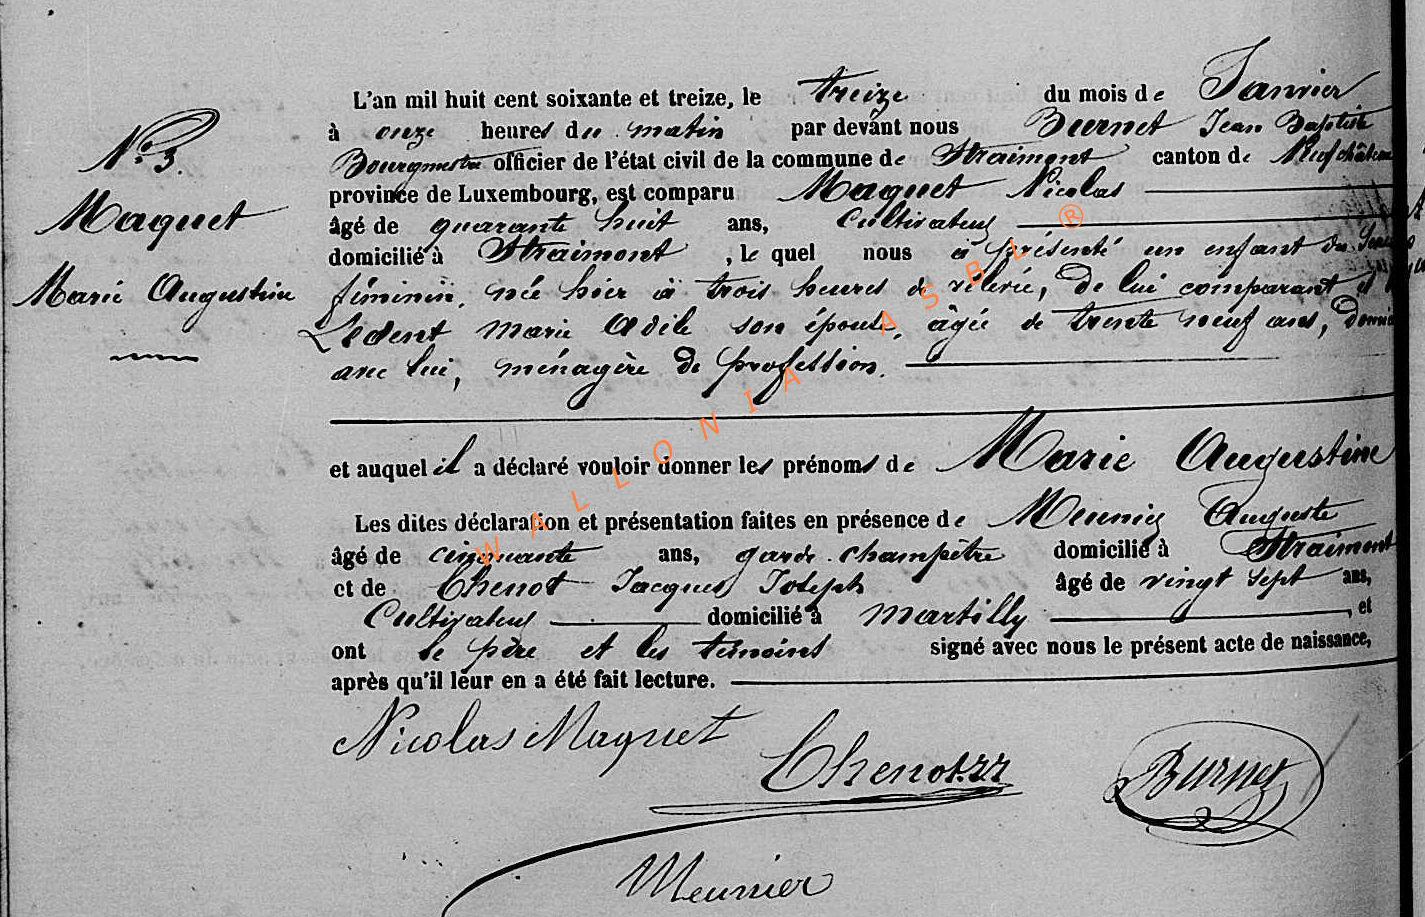 N° 3.
Maquet
Marie Augustine
L'an mil huit cent soixante et treize, le treize du mois de Janvier
à onze heures du matin par devant nous Burnet Jean Baptiste
Bourgmestre officier de l'état civil de la commune de Straimont canton de Neufchâteau
province de Luxembourg, est comparu Maquet Nicolas
âgé de quarante huit ans, Cultivateur
domicilié à Straimont, le quel nous a présenté un enfant du sexe
féminin, née hier à trois heures de rélevée, de lui comparant et
Ledent Marie Adile son épouse, âgée de trente neuf ans,
avec lui, ménagère de profession.
et auquel il a déclaré vouloir donner les prénoms de Marie Augustine
Les dites déclaration et présentation faites en présence de Meunier Auguste
âgé de cinquante ans, garde champêtre domicilié à Straimont
et de Chenot Jacques Joseph âgé de vingt sept ans,
Cultivateur domicilié à Martilly, et
ont le père et les témoins signé avec nous le présent acte de naissance,
après qu'il leur en a été fait lecture.
Nicolas Maquet
Chenot JJ
Burnet
Meunier
WALLONIA ASBL ®